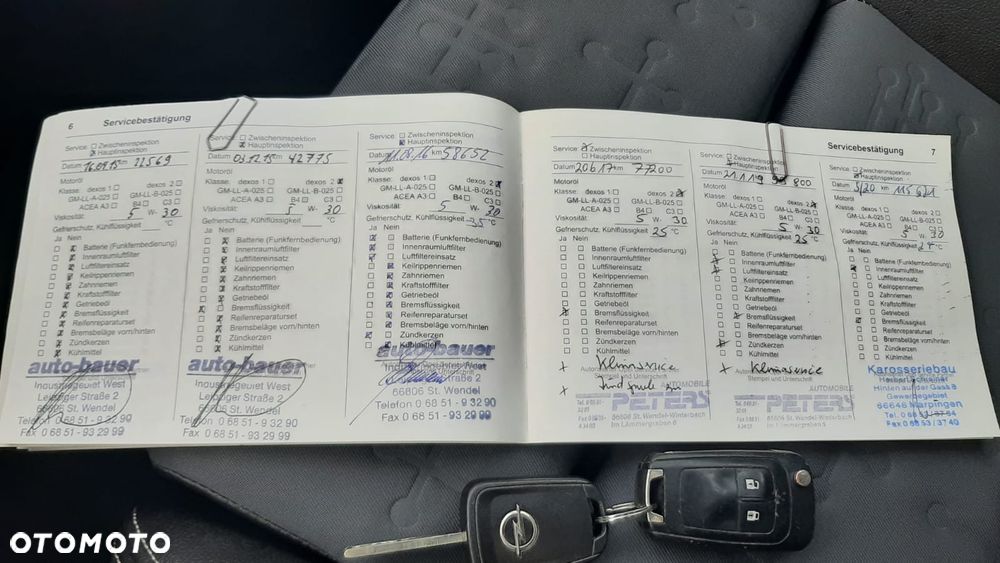 6 Servicebestätigung
Service: Zwischeninspektion
Hauptinspektion
Datum 16.09.15 km 22569
Motoröl
Klasse: dexos 1 dexos 2
GM-LL-A-025 GM-LL-B-025
ACEA A3 B4 C3
Viskosität: 5 W- 30
Gefrierschutz, Kühlflüssigkeit °C
Ja Nein
Batterie (Funkfernbedienung)
Innenraumluftfilter
Luftfiltereinsatz
Keilrippenriemen
Zahnriemen
Kraftstofffilter
Getriebeöl
Bremsflüssigkeit
Reifenreparaturset
Bremsbeläge vorn/hinten
Zündkerzen
Kühlmittel
auto-bauer
Industriegebiet West
Leipziger Straße 2
66606 St. Wendel
Telefon 0 68 51 - 9 32 90
Fax 0 68 51 - 93 29 99
Service: Zwischeninspektion
Hauptinspektion
Datum 03.12.15 km 42775
Motoröl
Klasse: dexos 1 dexos 2
GM-LL-A-025 GM-LL-B-025
ACEA A3 B4 C3
Viskosität: 5 W- 30
Gefrierschutz, Kühlflüssigkeit °C
Ja Nein
Batterie (Funkfernbedienung)
Innenraumluftfilter
Luftfiltereinsatz
Keilrippenriemen
Zahnriemen
Kraftstofffilter
Getriebeöl
Bremsflüssigkeit
Reifenreparaturset
Bremsbeläge vorn/hinten
Zündkerzen
Kühlmittel
auto-bauer
Industriegebiet West
Leipziger Straße 2
66606 St. Wendel
Telefon 0 68 51 - 9 32 90
Fax 0 68 51 - 93 29 99
Service: Zwischeninspektion
Hauptinspektion
Datum 11.08.16 km 58652
Motoröl
Klasse: dexos 1 dexos 2
GM-LL-A-025 GM-LL-B-025
ACEA A3 B4 C3
Viskosität: 5 W- 30
Gefrierschutz, Kühlflüssigkeit -35 °C
Ja Nein
Batterie (Funkfernbedienung)
Innenraumluftfilter
Luftfiltereinsatz
Keilrippenriemen
Zahnriemen
Kraftstofffilter
Getriebeöl
Bremsflüssigkeit
Reifenreparaturset
Bremsbeläge vorn/hinten
Zündkerzen
Kühlmittel
auto-bauer
Industriegebiet West
Leipziger Straße 2
66606 St. Wendel
Telefon 0 68 51 - 9 32 90
Fax 0 68 51 - 93 29 99
Servicebestätigung 7
Service: Zwischeninspektion
Hauptinspektion
Datum 20617 km 77200
Motoröl
Klasse: dexos 1 dexos 2
GM-LL-A-025 GM-LL-B-025
ACEA A3 B4 C3
Viskosität: 5 W- 30
Gefrierschutz, Kühlflüssigkeit 25 °C
Ja Nein
Batterie (Funkfernbedienung)
Innenraumluftfilter
Luftfiltereinsatz
Keilrippenriemen
Zahnriemen
Kraftstofffilter
Getriebeöl
Bremsflüssigkeit
Reifenreparaturset
Bremsbeläge vorn/hinten
Zündkerzen
Kühlmittel
Klimaservice
AUTOMOBILE
PETERS
66606 St. Wendel-Winterbach
Im Lämmergraben 6
Zwischeninspektion
Hauptinspektion
Datum 21119 800
Motoröl
Klasse: dexos 1 dexos 2
GM-LL-A-025 GM-LL-B-025
ACEA A3 B4 C3
Viskosität: 5 W- 30
Gefrierschutz, Kühlflüssigkeit 25 °C
Ja Nein
Batterie (Funkfernbedienung)
Innenraumluftfilter
Luftfiltereinsatz
Keilrippenriemen
Zahnriemen
Kraftstofffilter
Getriebeöl
Bremsflüssigkeit
Reifenreparaturset
Bremsbeläge vorn/hinten
Zündkerzen
Kühlmittel
Klimaservice
Stempel und Unterschrift
AUTOMOBILE
PETERS
66606 St. Wendel-Winterbach
Im Lämmergraben 6
Service: Zwischeninspektion
Hauptinspektion
Datum 5/20 km
Motoröl
Klasse: dexos 1 dexos 2
GM-LL-A-025 GM-LL-B-025
ACEA A3 B4 C3
Viskosität: 5 W- 30
Gefrierschutz, Kühlflüssigkeit °C
Ja Nein
Batterie (Funkfernbedienung)
Innenraumluftfilter
Luftfiltereinsatz
Keilrippenriemen
Zahnriemen
Kraftstofffilter
Getriebeöl
Bremsflüssigkeit
Reifenreparaturset
Bremsbeläge vorn/hinten
Zündkerzen
Kühlmittel
Karosseriebau
Hinten auf der Gass 8
Gewerbegebiet
66646 Marpingen
Fax 0 68 53 / 37 40
OTOMOTO